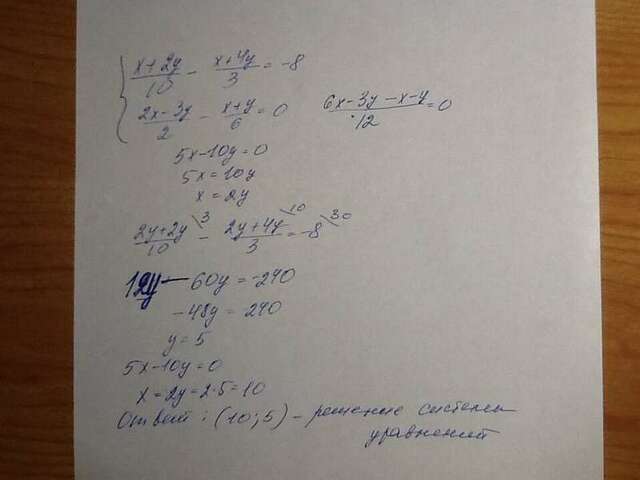 (x+2y)/10 - (x+4y)/3 = -8
(2x-3y)/2 - (x+y)/6 = 0
(6x-3y-x-y)/12 = 0
5x-10y=0
5x=10y
x=2y
(2y+2y)/10 \3 - (2y+4y)/3 \10 = -8 \30
12y - 60y = -240
-48y = 240
y = 5
5x-10y=0
x=2y=2·5=10
Ответ: (10;5) - решение системы
уравнений